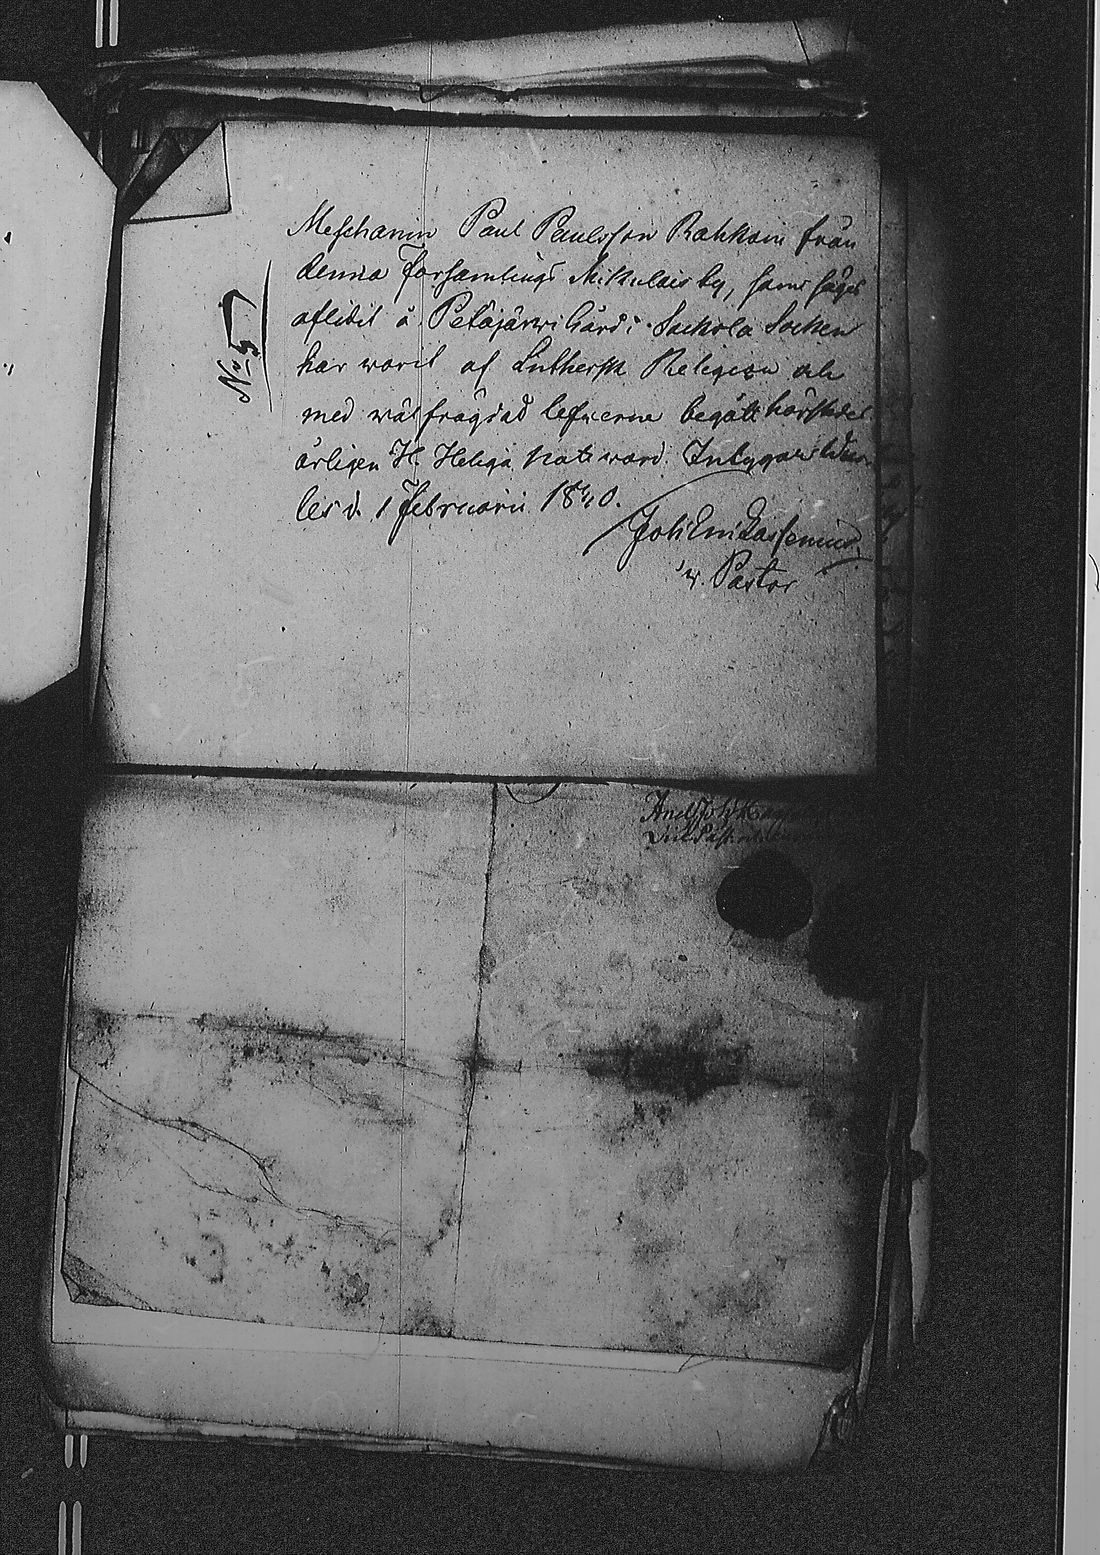 No 5
Meschanin Paul Paulsson Rahkoin från
denna Församlings Mikulais by, som säges
aflidit å Petäjärwi Gård i Sackola Socken
har warit af Luthersk Religion och
med wälfrägdad lefwerne begått härstädes
årligen H. Heliga Nattward. Intygar
d. 1 Februarii 1840.
Joh: Em:
v. Pastor